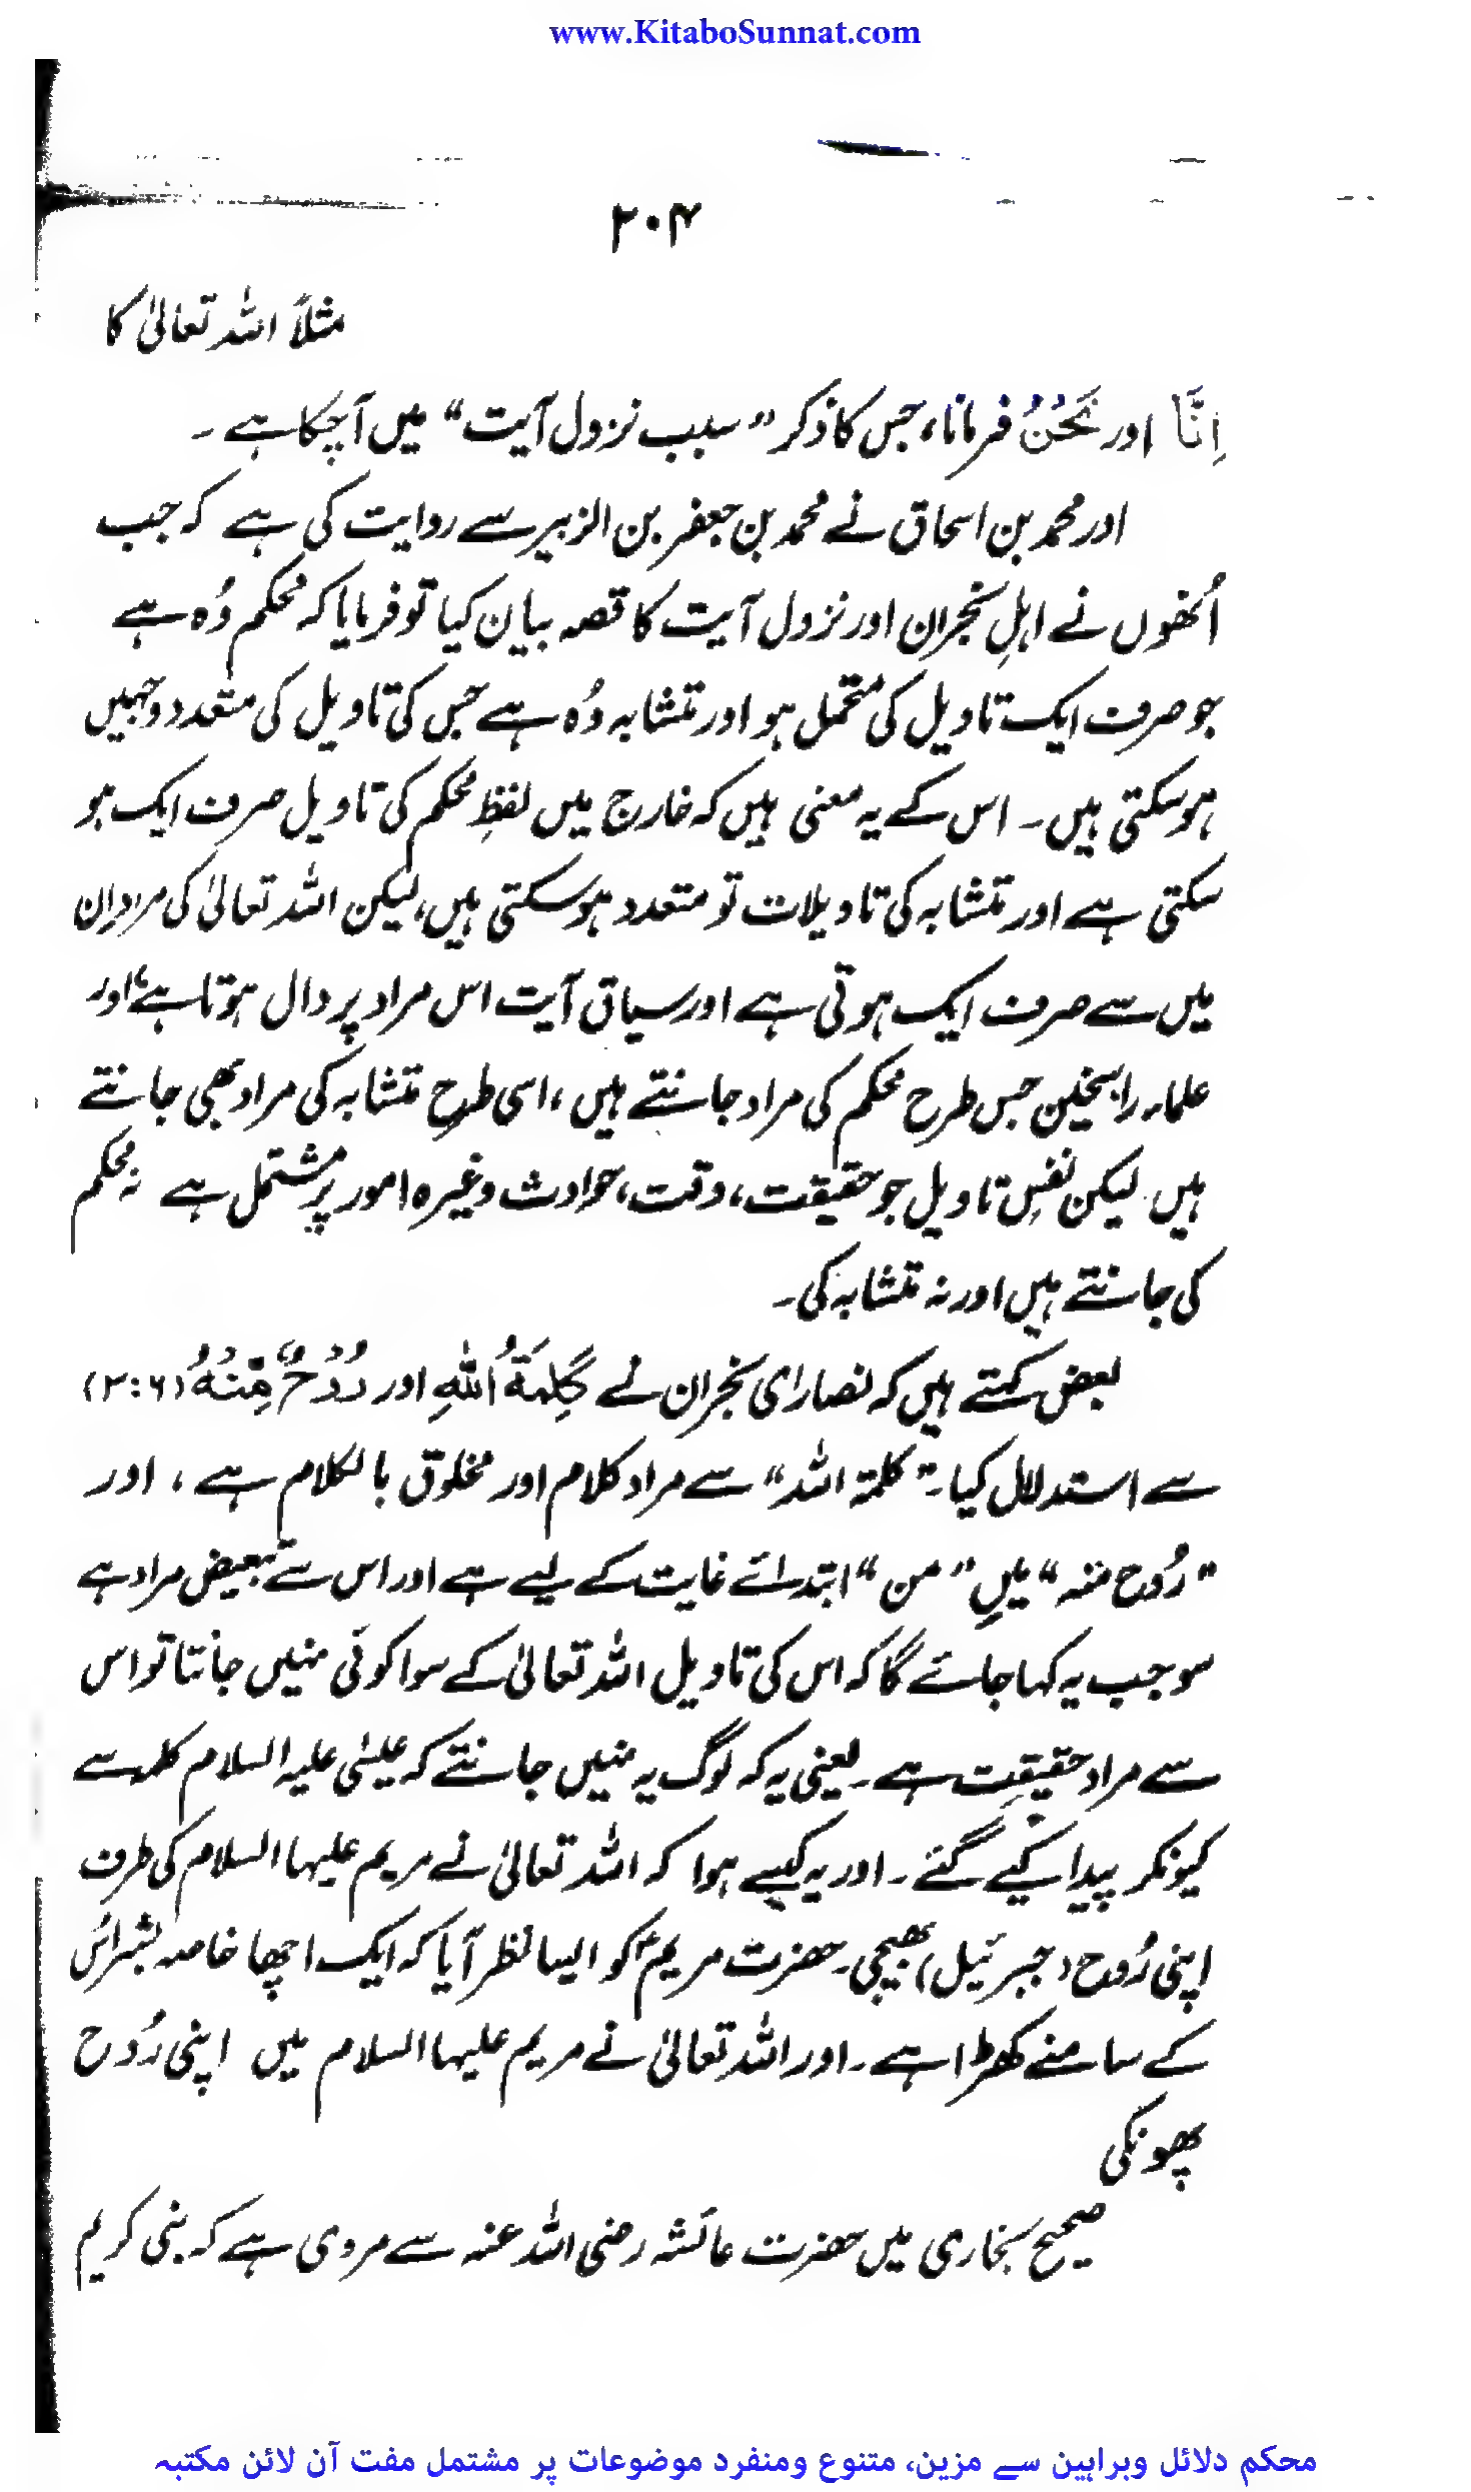 www.KitaboSunnat.com
۲۰۴
مثلاً اللہ تعالیٰ کا
اِنَّا اور نَحْنُ فرمانا، جس کا ذکر "سبب نزول آیت" میں آچکا ہے۔
اور محمد بن اسحاق نے محمد بن جعفر بن الزبیر سے روایت کی ہے کہ جب
اُنھوں نے اہلِ نجران اور نزول آیت کا قصہ بیان کیا تو فرمایا کہ محکم وُہ ہے
جو صرف ایک تاویل کی متحمل ہو اور متشابہ وُہ ہے جس کی تاویل کی متعدد وجہیں
ہوسکتی ہیں۔ اس کے یہ معنی ہیں کہ خارج میں لفظِ محکم کی تاویل صرف ایک ہو
سکتی ہے اور متشابہ کی تاویلات تو متعدد ہوسکتی ہیں، لیکن اللہ تعالیٰ کی مراد اِن
میں سے صرف ایک ہوتی ہے اور سیاق آیت اس مراد پر دال ہوتا ہے، اور
علماء راسخین جس طرح محکم کی مراد جانتے ہیں، اسی طرح متشابہ کی مراد بھی جانتے
ہیں لیکن نفسِ تاویل جو حقیقت، وقت، حوادث وغیرہ امور پر مشتمل ہے نہ محکم
کی جانتے ہیں اور نہ متشابہ کی۔
بعض کہتے ہیں کہ نصارای نجران نے كَلِمَةُ اللهِ اور رُوْحٌ مِّنْهُ (۲:۶)
سے استدلال کیا۔ "کلمۃ اللہ" سے مراد کلام اور مخلوق بالکلام ہے، اور
"رُوح منہ" میں "من" ابتدائے غایت کے لیے ہے اور اس سے تبعیض مراد ہے
سو جب یہ کہا جائے گا کہ اس کی تاویل اللہ تعالیٰ کے سوا کوئی نہیں جانتا تو اس
سے مراد حقیقت ہے۔ یعنی یہ کہ لوگ یہ نہیں جانتے کہ عیسٰی علیہ السلام کلمہ سے
کیونکر پیدا کیے گئے۔ اور یہ کیسے ہوا کہ اللہ تعالیٰ نے مریم علیہا السلام کی طرف
اپنی رُوح (جبرئیل) بھیجی۔ حضرت مریمؑ کو ایسا نظر آیا کہ ایک اچھا خاصہ بشر اُس
کے سامنے کھڑا ہے۔ اور اللہ تعالیٰ نے مریم علیہا السلام میں اپنی رُوح
پھونکی
صحیح بخاری میں حضرت عائشہ رضی اللہ عنہ سے مروی ہے کہ نبی کریم
محکم دلائل وبراہین سے مزین، متنوع ومنفرد موضوعات پر مشتمل مفت آن لائن مکتبہ